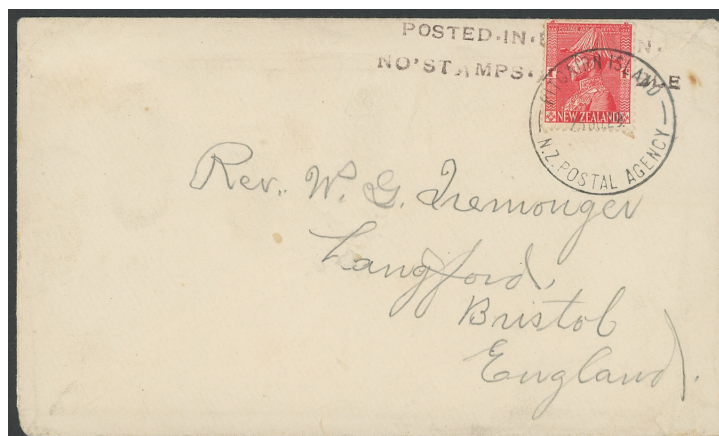 POSTED·IN·
NO'STAMPS·
POSTAGE AND REVENUE
NEW ZEALAND
PITCAIRN ISLAND
N.Z. POSTAL AGENCY
Rev. W. G. Tremonger
Langford,
Bristol
England.